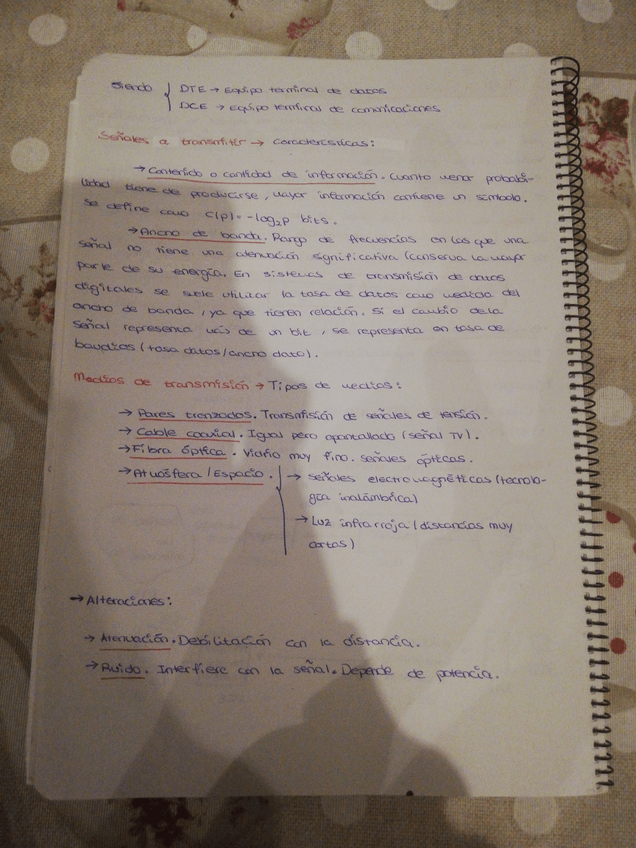 Siendo { DTE → Equipo terminal de datos
DCE → Equipo terminal de comunicaciones
Señales a transmitir → Características:
→ Contenido o cantidad de información. Cuanto menor probabi-
lidad tiene de producirse, mayor información contiene un símbolo.
Se define como C(p) = -log₂p bits.
→ Ancho de banda. Rango de frecuencias en las que una
señal no tiene una atenuación significativa (conserva la mayor
parte de su energía. En sistemas de transmisión de datos
digitales se suele utilizar la tasa de datos como medida del
ancho de banda, ya que tienen relación. Si el cambio de la
señal representa más de un bit, se representa en tasa de
baudios (tasa datos/ancho dato).
Medios de transmisión → Tipos de medios:
→ Pares trenzados. Transmisión de señales de tensión.
→ Cable coaxial. Igual pero apantallado (señal TV).
→ Fibra óptica. Vidrio muy fino. Señales ópticas.
→ Atmósfera / Espacio. → señales electromagnéticas (tecnolo-
gía inalámbrica)
→ Luz infrarroja (distancias muy
cortas)
→ Alteraciones:
→ Atenuación. Debilitación con la distancia.
→ Ruido. Interfiere con la señal. Depende de potencia.